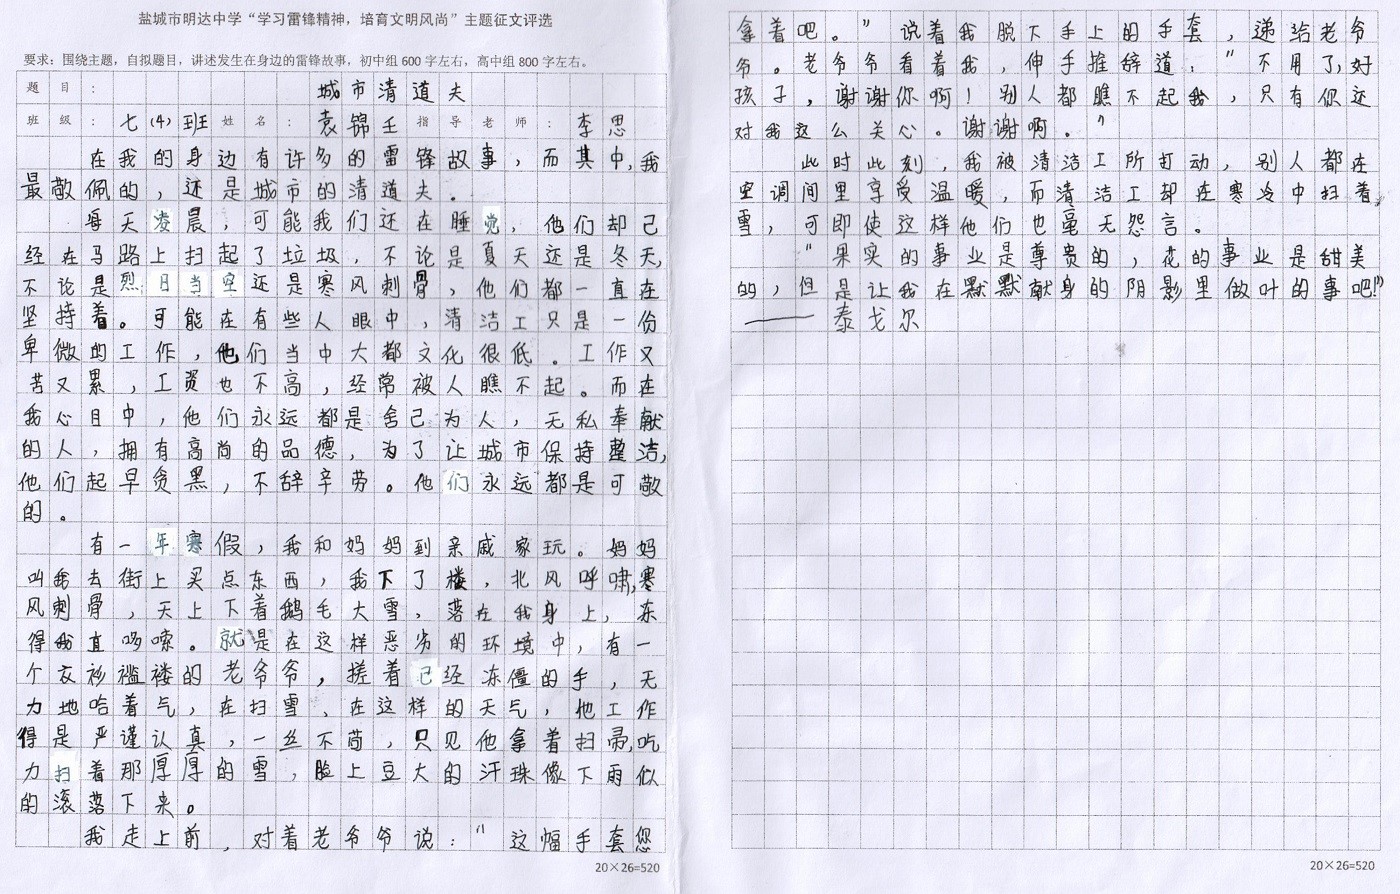 盐城市明达中学“学习雷锋精神，培育文明风尚”主题征文评选
要求：围绕主题，自拟题目，讲述发生在身边的雷锋故事，初中组600字左右，高中组800字左右。
题目：城市清道夫
班级：七(4)班 姓名：袁锦王 指导老师：李思
在我的身边有许多的雷锋故事，而其中，我
最敬佩的，还是城市的清道夫。
每天凌晨，可能我们还在睡觉，他们却已
经在马路上扫起了垃圾，不论是夏天还是冬天，
不论是烈日当空还是寒风刺骨，他们都一直在
坚持着。可能在有些人眼中，清洁工只是一份
卑微的工作，他们当中大都文化很低。工作又
苦又累，工资也不高，经常被人瞧不起。而在
我心目中，他们永远都是舍己为人，无私奉献
的人，拥有高尚的品德，为了让城市保持整洁，
他们起早贪黑，不辞辛劳。他们永远都是可敬
的。
有一年寒假，我和妈妈到亲戚家玩。妈妈
叫我去街上买点东西，我下了楼，北风呼啸，寒
风刺骨，天上下着鹅毛大雪，落在我身上，冻
得我直哆嗦。就是在这样恶劣的环境中，有一
个衣衫褴褛的老爷爷，搓着已经冻僵的手，无
力地哈着气，在扫雪、在这样的天气，他工作
得是严谨认真，一丝不苟，只见他拿着扫帚，吃
力扫着那厚厚的雪，脸上豆大的汗珠像下雨似
的滚落下来。
我走上前，对着老爷爷说：“这幅手套您
20×26=520
拿着吧。”说着我脱下手上的手套，递给老爷
爷。老爷爷看着我，伸手推辞道，“不用了，好
孩子，谢谢你啊！别人都瞧不起我，只有你还
对我这么关心。谢谢啊。”
此时此刻，我被清洁工所打动，别人都在
空调间里享受温暖，而清洁工却在寒冷中扫着
雪，可即使这样他们也毫无怨言。
“果实的事业是尊贵的，花的事业是甜美
的，但是让我在默默献身的阴影里做叶的事吧！”
——泰戈尔
20×26=520